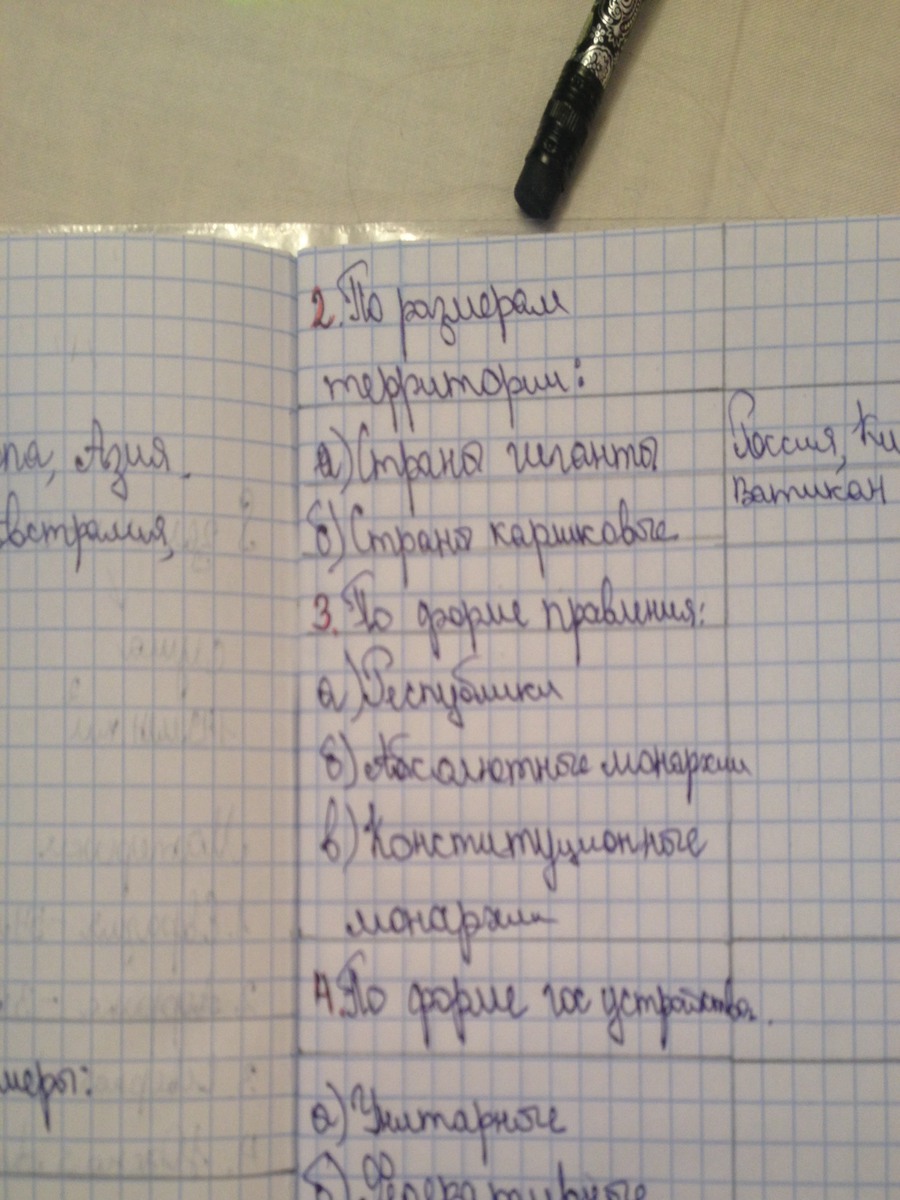 па, Азия
Австралия,
меры:
2. По размерам
территории:
а) Страны гиганты
Россия, Ки
Ватикан
б) Страны карликовые
3. По форме правления:
а) Республики
б) Абсолютные монархии
в) Конституционные
монархии
4. По форме гос устройства.
а) Унитарные
б) Федеративные